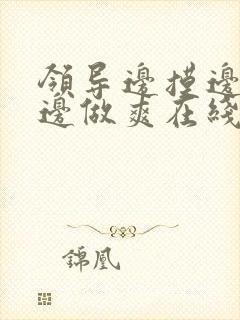 领导邊摸邊
邊做爽在綫
錦凰